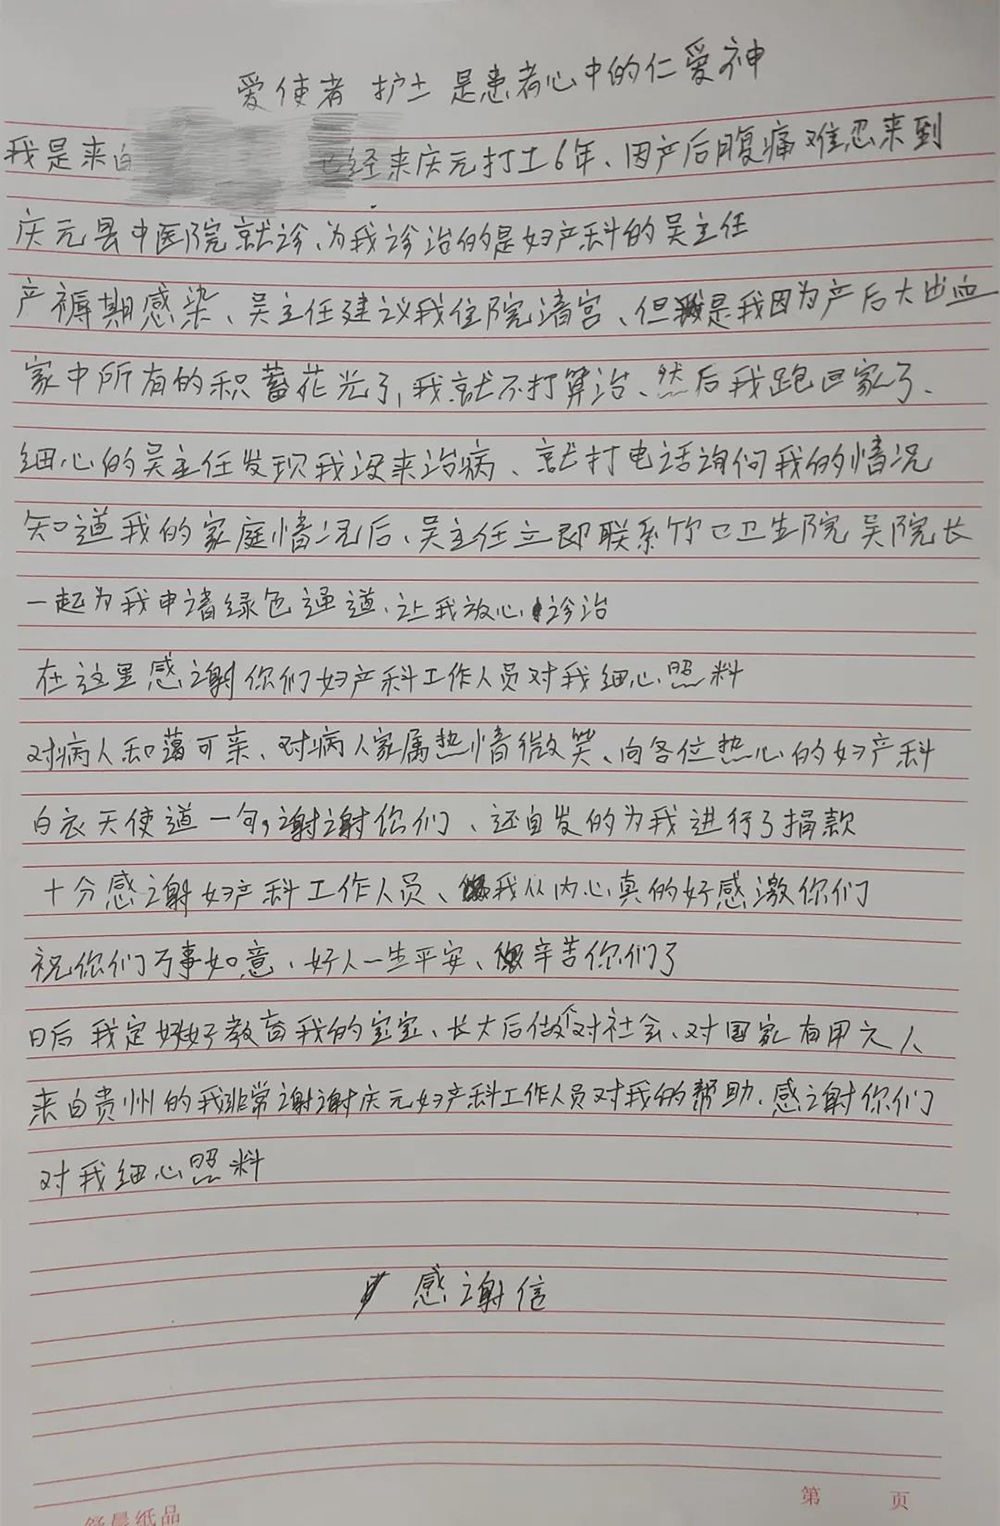 爱使者 护士 是患者心中的仁爱神
我是来自 已经来庆元打工6年、因产后腹痛难忍来到
庆元县中医院就诊、为我诊治的是妇产科的吴主任
产褥期感染、吴主任建议我住院清宫、但是我因为产后大出血
家中所有的积蓄花光了,我就不打算治、然后我跑回家了、
细心的吴主任发现我没来治病、就打电话询问我的情况
知道我的家庭情况后、吴主任立即联系竹口卫生院吴院长
一起为我申请绿色通道、让我放心诊治
在这里感谢你们妇产科工作人员对我细心照料
对病人和蔼可亲、对病人家属热情微笑、向各位热心的妇产科
白衣天使道一句,谢谢你们、还自发的为我进行了捐款
十分感谢妇产科工作人员、我从内心真的好感激你们
祝你们万事如意、好人一生平安、辛苦你们了
日后我定好好教育我的宝宝、长大后做个对社会、对国家有用之人
来自贵州的我非常谢谢庆元妇产科工作人员对我的帮助、感谢你们
对我细心照料
感谢信
第 页
纸品